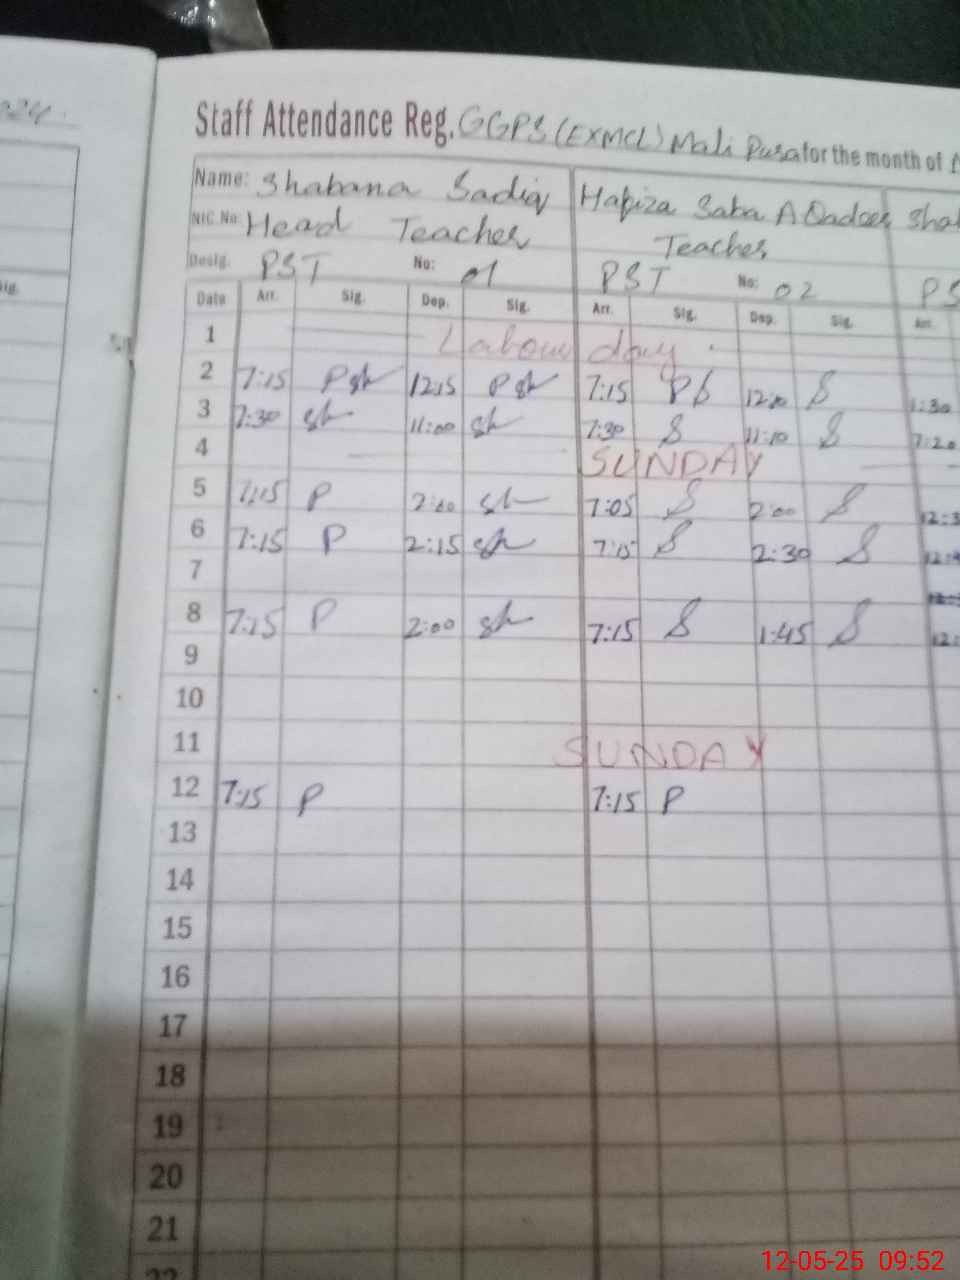 024
Staff Attendance Reg. GGPS (EXMCL) Mali Pura for the month of
Name: Shabana Sadiq Hafiza Saba A Qadees Sha
NIC No: Head Teacher Teacher
Desig. PST No: 01 PST No: 02 PS
Sig.
Date Arr. Sig. Dep. Sig. Arr. Sig. Dep. Sig. Arr.
1 Labour day.
2 7:15 Psh 12:15 Psh 7:15 PS S 1:30
3 7:30 sh 11:00 sh 7:30 S 11:10 S 7:20
4 SUNDAY
5 7:15 P sh 7:05 S 2:00 S
6 7:15 P 2:15 sh S 2:30 S
7
8 7:15 P 2:00 sh 7:15 S 1:45 S
9
10
11 SUNDAY
12 7:15 P 7:15 P
13
14
15
16
17
18
19
20
21
22
12-05-25 09:52